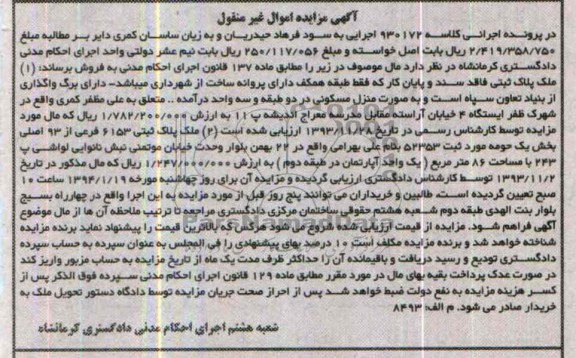 آگهی مزایده اموال غیر منقول
در پرونده اجرائی کلاسه ۹۳۰۱۷۲ اجرایی به سود فرهاد حیدریان و به زیان ساسان کمری دایر بر مطالبه مبلغ
۲/۴۱۹/۳۵۸/۷۵۰ ریال بابت اصل خواسته و مبلغ ۲۵۰/۱۱۷/۰۵۶ ریال بابت نیم عشر دولتی واحد اجرای احکام مدنی
دادگستری کرمانشاه در نظر دارد مال موصوف در زیر را مطابق ماده ۱۳۷ قانون اجرای احکام مدنی به فروش برساند: (۱)
ملک پلاک ثبتی فاقد سند و پایان کار که فقط طبقه همکف دارای پروانه ساخت از شهرداری میباشد- دارای برگ واگذاری
از بنیاد تعاون سپاه است و به صورت منزل مسکونی در دو طبقه و سه واحد درآمده .. متعلق به علی مظفر کمری واقع در
شهرک ظفر ایستگاه ۴ خیابان آراسته مقابل مدرسه معراج اندیشه پ ۱۱ به ارزش ۱/۷۸۲/۲۰۰/۰۰۰ ریال که مال مورد
مزایده توسط کارشناس رسمی در تاریخ ۱۳۹۳/۱۰/۲۸ ارزیابی شده است (۲) ملک پلاک ثبتی ۶۱۵۳ فرعی از ۹۳ اصلی
بخش یک حومه مورد ثبت ۵۲۳۵۳ بنام علی بهرامی واقع در ۲۲ بهمن بلوار وحدت خیابان موتمنی نبش نانوایی لواشی پ
۲۴۳ با مساحت ۸۶ متر مربع ( یک واحد آپارتمان در طبقه دوم ) به ارزش ۱/۲۴۷/۰۰۰/۰۰۰ ریال که مال مذکور در تاریخ
۱۳۹۳/۱۱/۲ توسط کارشناس دادگستری ارزیابی گردیده و مزایده آن برای روز چهاشنبه مورخه ۱۳۹۴/۱/۱۹ ساعت ۱۰
صبح تعیین گردیده است. طالبین و خریداران می توانند پنج روز قبل از مورد مزایده به این اجرا واقع در چهارراه بسیج
بلوار بنت الهدی طبقه دوم شعبه هشتم حقوقی ساختمان مرکزی دادگستری مراجعه تا ترتیب ملاحظه آن ها از مال موضوع
آگهی فراهم شود. مزایده از قیمت ارزیابی شده شروع می شود هرکس که بالاترین قیمت را پیشنهاد نماید برنده مزایده
شناخته خواهد شد و برنده مزایده مکلف است ۱۰ درصد بهای پیشنهادی را فی المجلس به عنوان سپرده به حساب سپرده
دادگستری تودیع و رسید دریافت و باقیمانده آن را حداکثر ظرف مدت یک ماه از تاریخ مزایده به حساب مزبور واریز کند
در صورت عدک پرداخت بقیه بهای مال در مورد مقرر مطابق ماده ۱۲۹ قانون اجرای احکام مدنی سپرده فوق الذکر پس از
کسر هزینه مزایده به نفع دولت ضبط خواهد شد پس از احراز صحت جریان مزایده توسط دادگاه دستور تحویل ملک به
خریدار صادر می شود. م الف: ۸۴۹۳
شعبه هشتم اجرای احکام مدنی دادگستری کرمانشاه